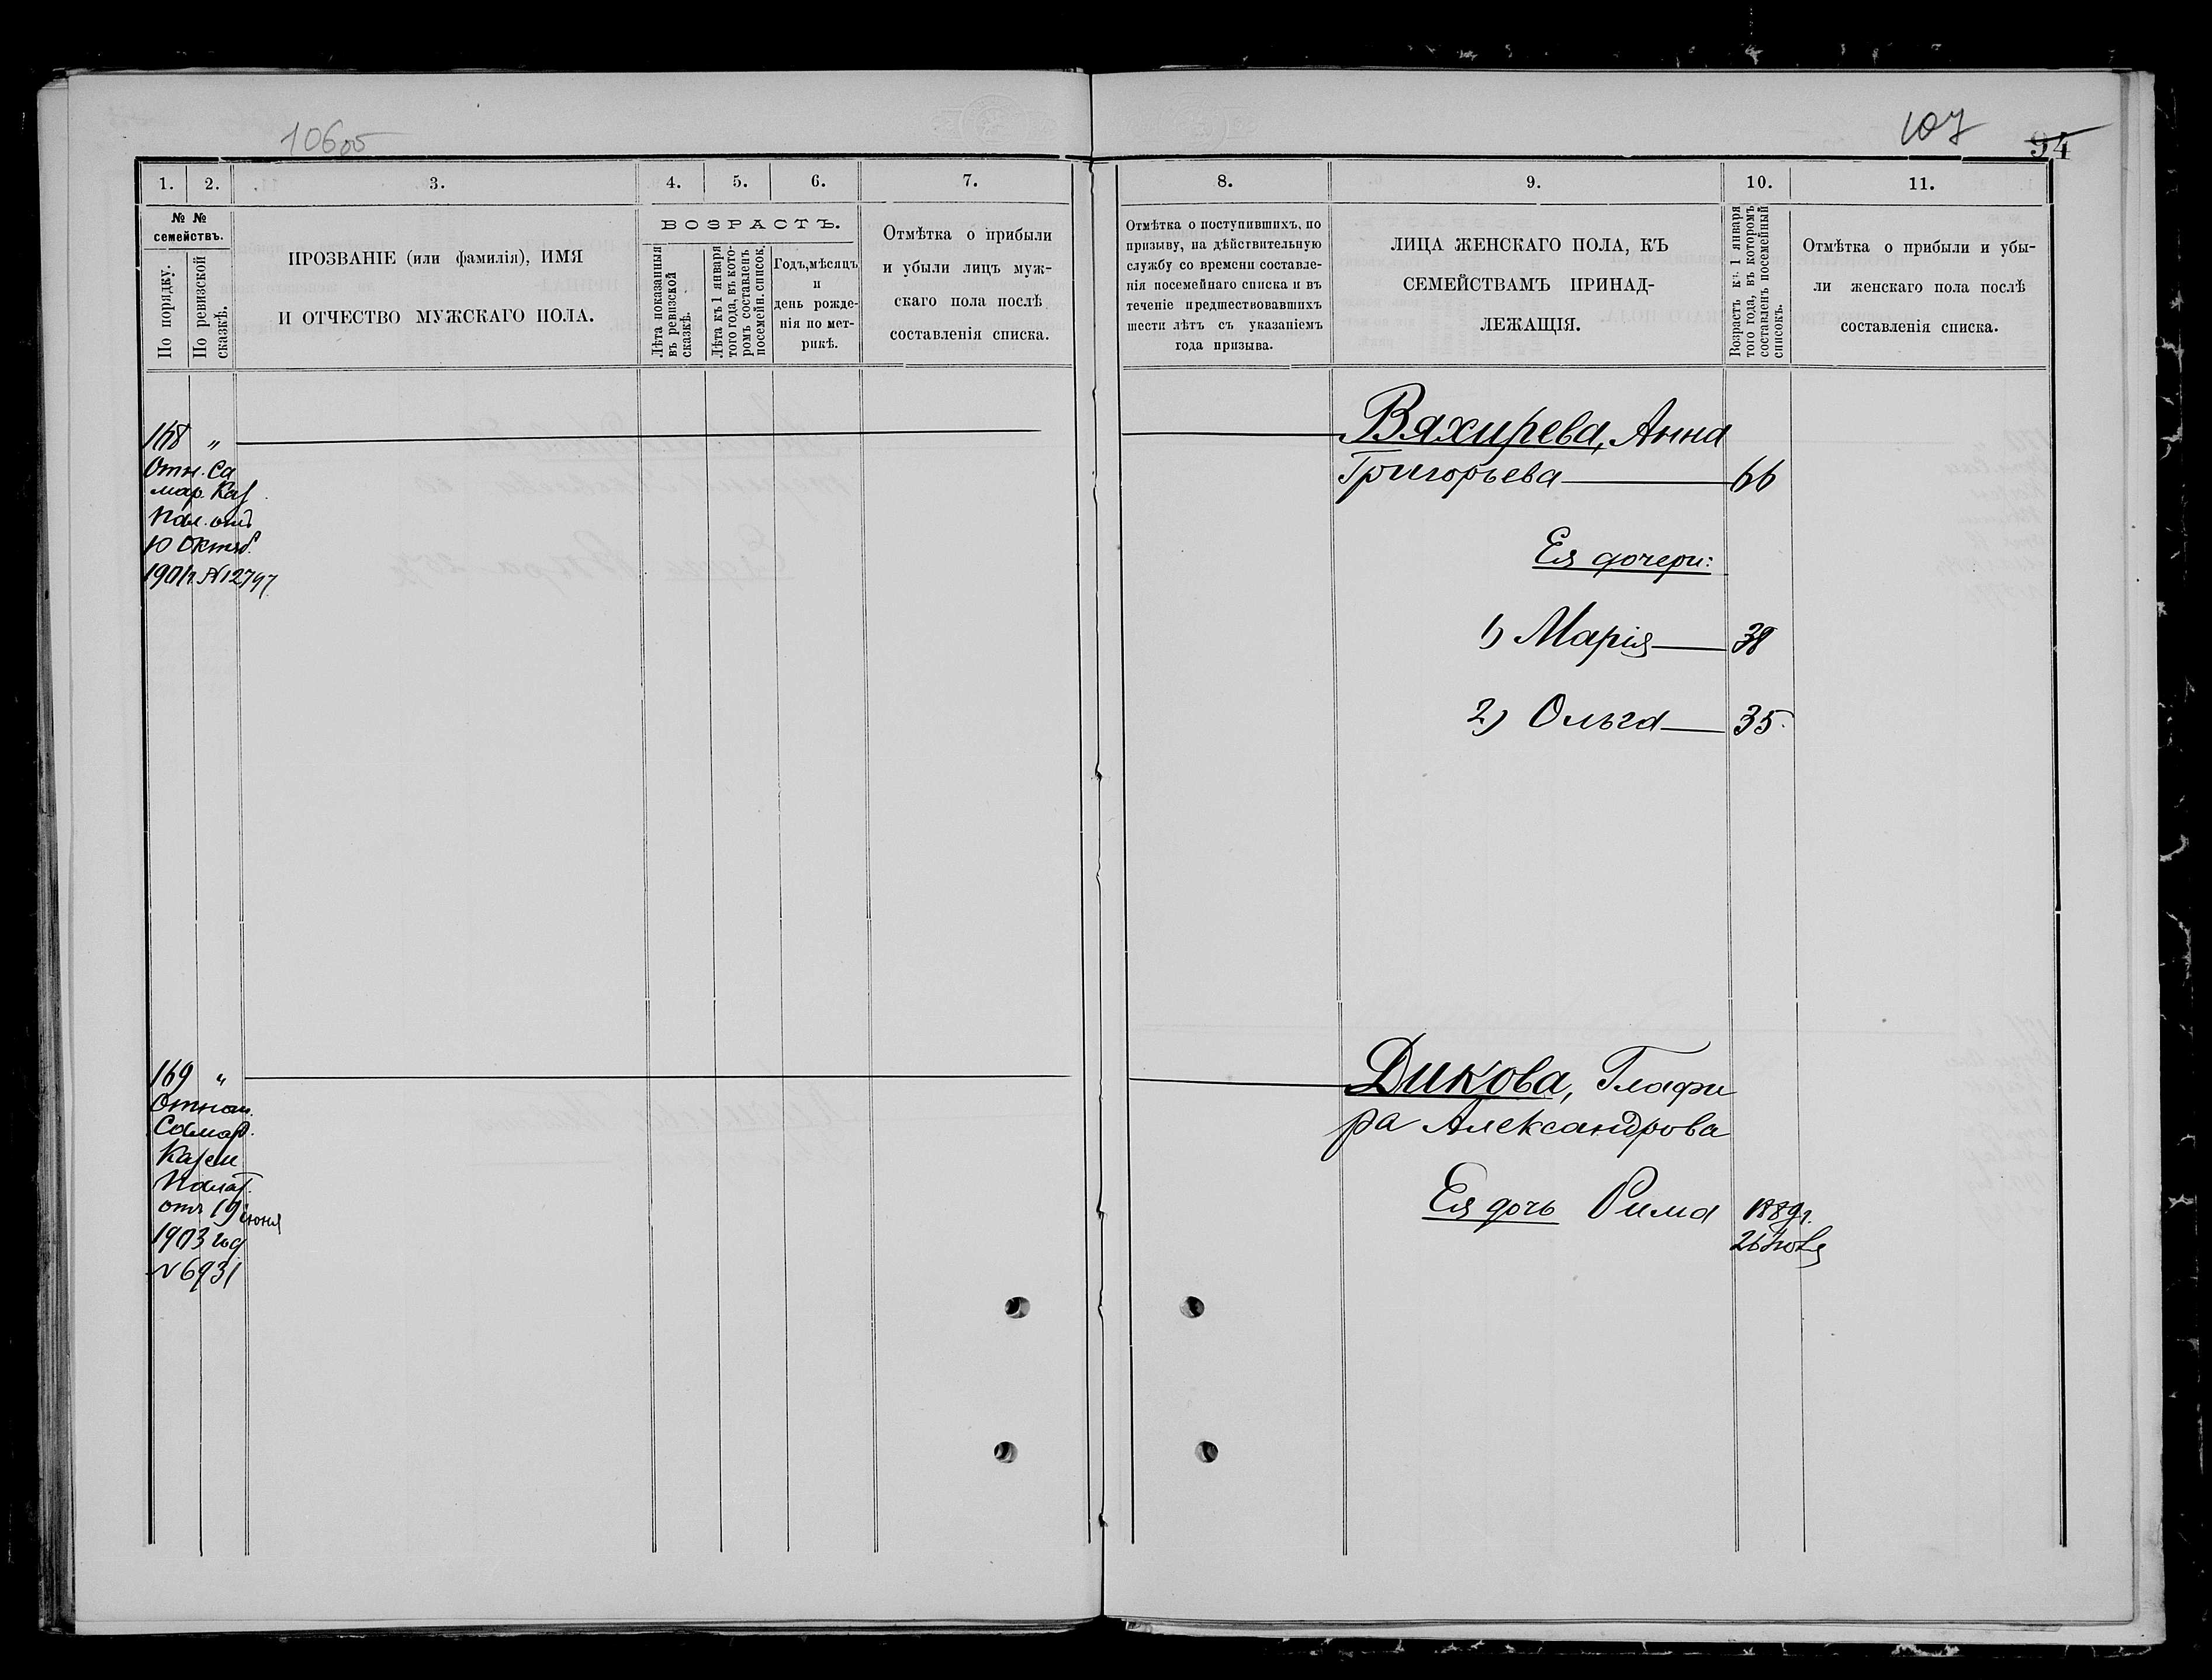 106об
107
94
1. 2. 3. 4. 5. 6. 7.
№ №
семействъ.
По порядку.
По ревизской
сказкѣ.
ПРОЗВАНІЕ (или фамилія), ИМЯ
И ОТЧЕСТВО МУЖСКАГО ПОЛА.
ВОЗРАСТЪ.
Лѣта показанныя
въ ревизской
сказкѣ.
Лѣта къ 1 января
того года, въ кото-
ромъ составленъ
посемейн. список.
Годъ, мѣсяцъ
и
день рожде-
нія по мет-
рикѣ.
Отмѣтка о прибыли
и убыли лицъ муж-
скаго пола послѣ
составленія списка.
168 "
Отн. Са
мар. Каз.
Пал. отъ
10 Октяб.
1901г. №12797.
169 "
Отнош.
Самар.
Казен
Палат.
отъ 19 июня
1903 год
№6931
8. 9. 10. 11.
Отмѣтка о поступившихъ, по
призыву, на дѣйствительную
службу со времени составле-
нія посемейнаго списка и въ
теченіе предшествовавшихъ
шести лѣтъ съ указаніемъ
года призыва.
ЛИЦА ЖЕНСКАГО ПОЛА, КЪ
СЕМЕЙСТВАМЪ ПРИНАД-
ЛЕЖАЩІЯ.
Возрастъ къ 1 января
того года, въ которомъ
составленъ посемейный
списокъ.
Отмѣтка о прибыли и убы-
ли женскаго пола послѣ
составленія списка.
Вяхирева, Анна
Григорьева 66
Ея дочери:
1) Марія 38
2) Ольга 35.
Дикова, Глафи
ра Александрова
Ея дочь Рима 1889г.
26 Нояб